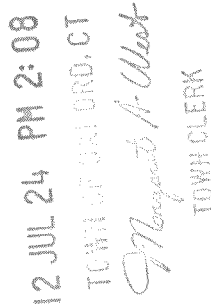 12 JUL 24 PM 2:08
TOWN OF GUILFORD, CT
Margaret A. West
TOWN CLERK